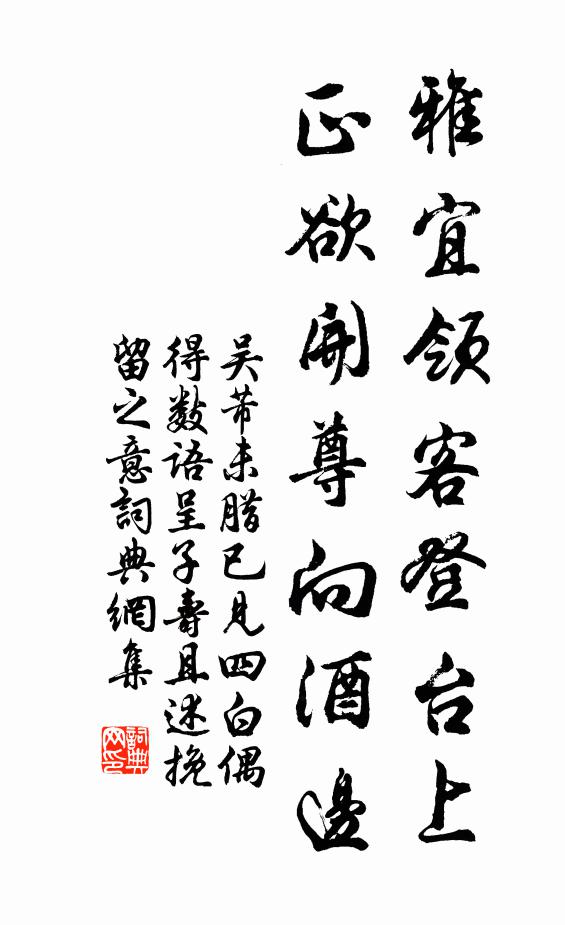 雅宜领客登台上
正欲開尊向酒邊
吴芾未腊已见四白偶
得数语呈子寿且述挽
留之意詞典網集
詞典网印